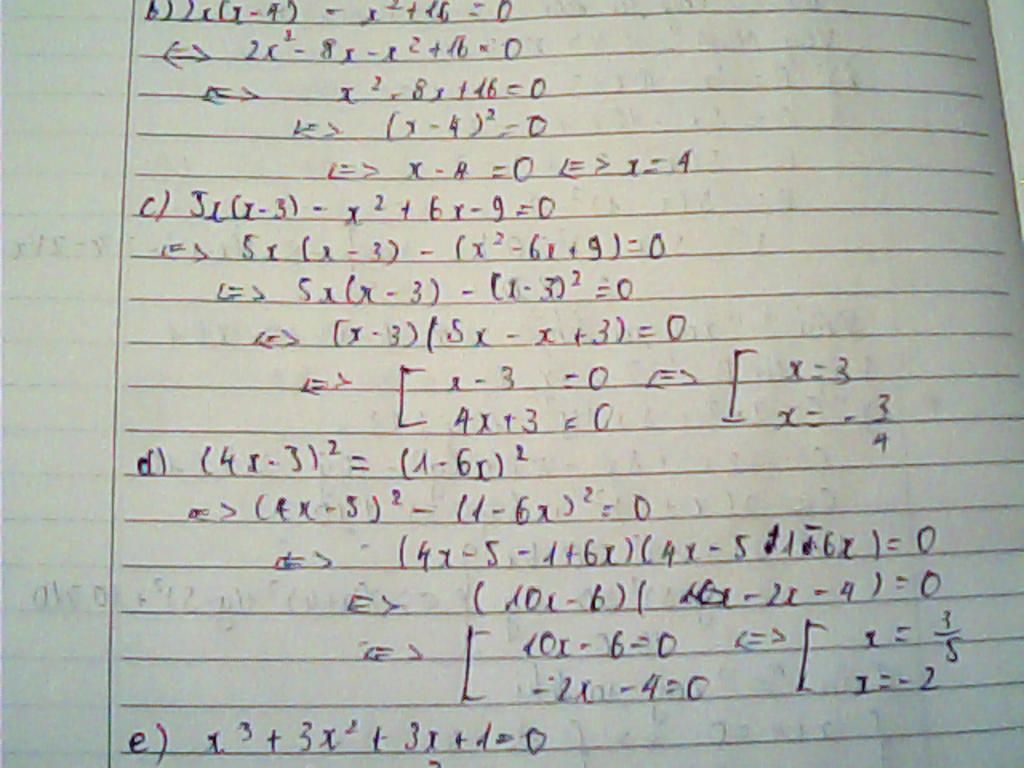 b) 2x(x-4) - x²+16 = 0
<=> 2x² - 8x - x² + 16 = 0
<=> x² - 8x + 16 = 0
<=> (x - 4)² = 0
<=> x - 4 = 0 <=> x = 4
c) 5x(x-3) - x² + 6x - 9 = 0
<=> 5x (x - 3) - (x² - 6x + 9) = 0
<=> 5x(x - 3) - (x - 3)² = 0
<=> (x - 3)(5x - x + 3) = 0
<=> [ x - 3 = 0 <=> [ x = 3
4x + 3 = 0 x = - 3/4
d) (4x - 3)² = (1 - 6x)²
<=> (4x - 5)² - (1 - 6x)² = 0
<=> (4x - 5 - 1 + 6x)(4x - 5 + 1 - 6x) = 0
<=> (10x - 6)( - 2x - 4) = 0
<=> [ 10x - 6 = 0 <=> [ x = 3/5
- 2x - 4 = 0 x = - 2
e) x³ + 3x² + 3x + 1 = 0